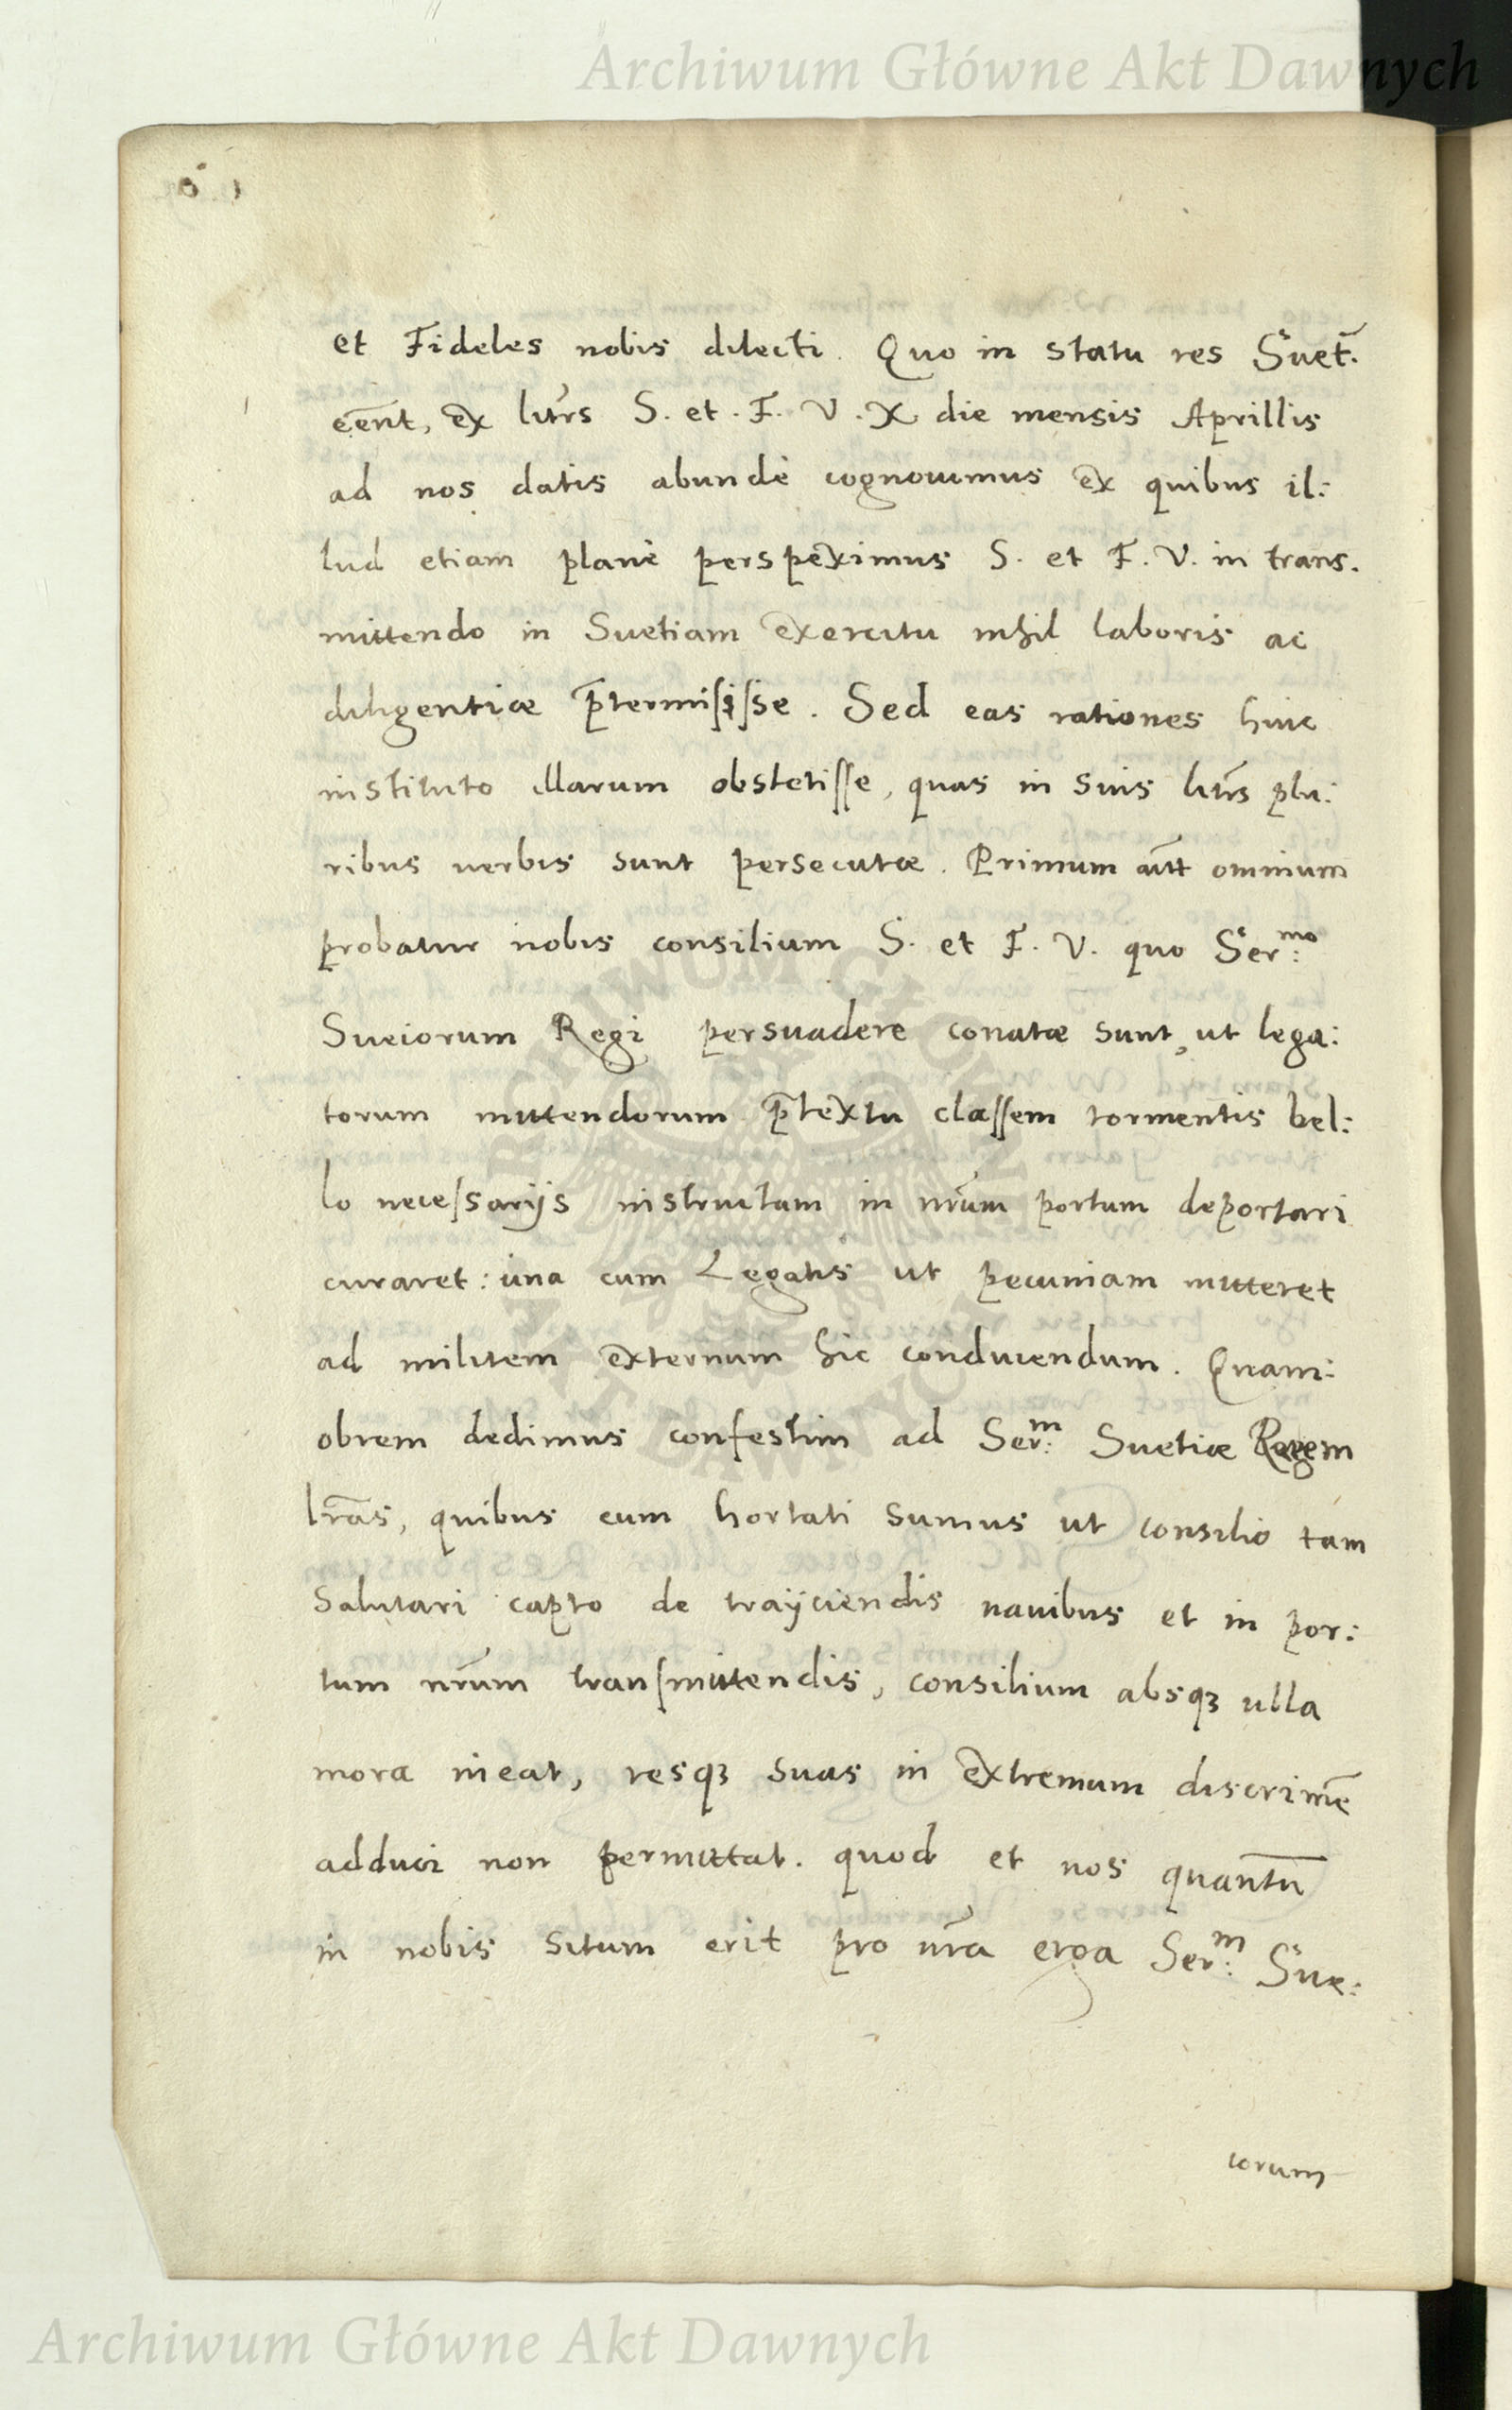 Archiwum Główne Akt Dawnych
et Fideles nobis dilecti. Quo in statu res Suet̃.
eēnt, ex litr̃s S. et. F. V. X die mensis Aprillis
ad nos datis abundè cognouimus ex quibus il:
lud etiam planè perspeximus S. et F. V. in trans.
mittendo in Suetiam exercitu nihil laboris ac
diligentiæ p̄termiſiſse. Sed eas rationes huic
instituto illarum obstetiſſe, quas in suis litr̃s plu:
ribus uerbis sunt persecutæ. Primum aũt omnium
probatur nobis consilium S. et F. V. quo Ser:mo
Sueiorum Regi persuadere conatæ sunt, ut lega:
torum mittendorum p̄textu claſſem tormentis bel:
lo neceſsarijs instructam in nr̃um portum deportari
curaret: una cum Legatis ut pecuniam mitteret
ad militem externum hic conducendum. Quam:
obrem dedimus confestim ad Ser:m Suetiæ Regem
lr̃as, quibus eum hortati sumus ut consilio tam
salutari capto de traijciendis nauibus et in por:
tum nr̃um tranſmittendis, consilium absqꝫ ulla
mora ineat, resqꝫ suas in extremum discrimē
adduci non permittat. quod et nos quantū
in nobis situm erit pro nr̃a erga Ser:m Sue:
corum
Archiwum Główne Akt Dawnych